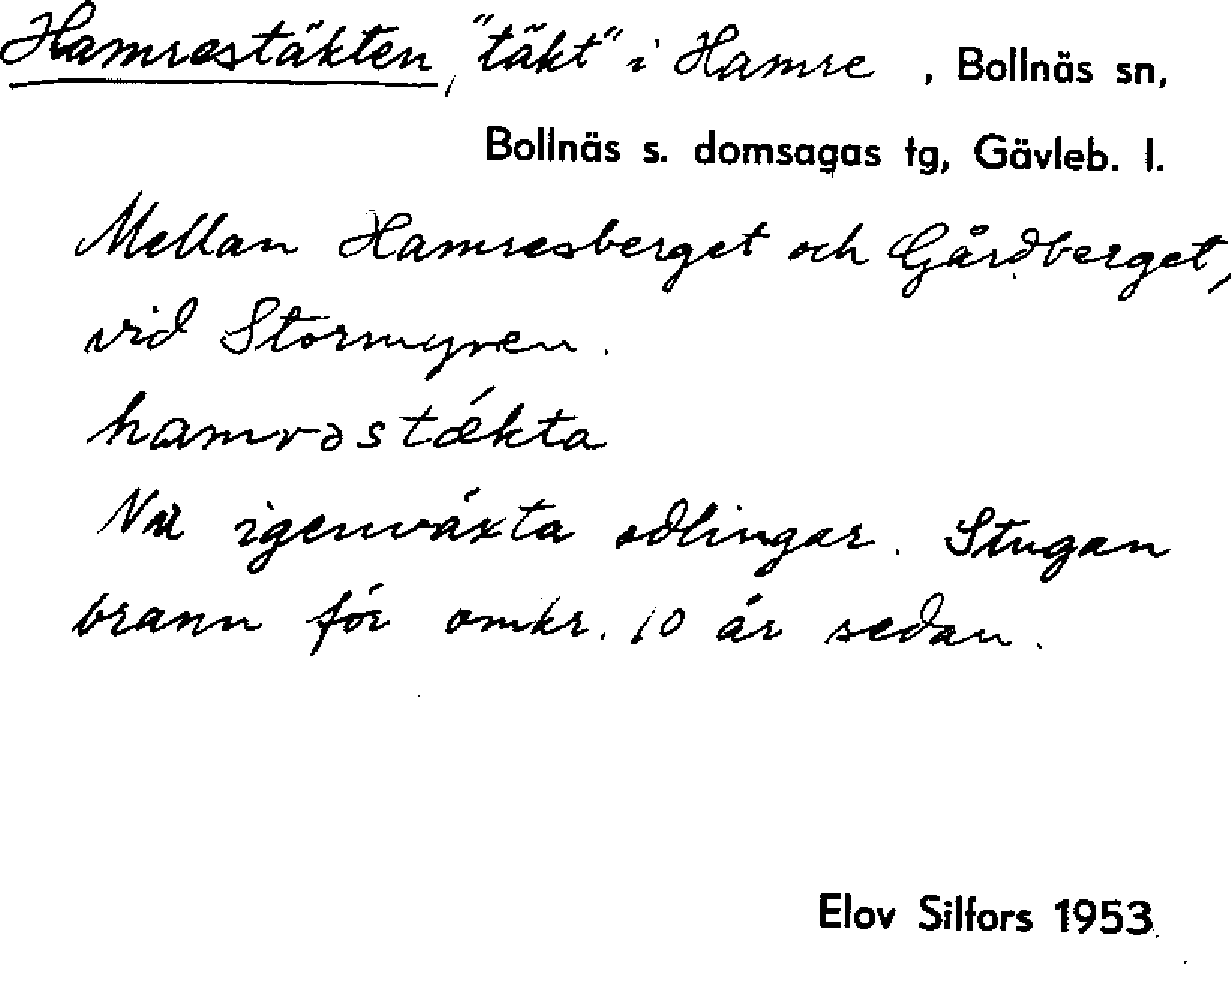 Hamrestäkten, "täkt" i Hamre , Bollnäs sn,
Bollnäs s. domsagas tg, Gävleb. l.
Mellan Hamresberget och Gårdberget,
vid Stormyren.
hamrəstǽkta
Nu igenväxta odlingar. Stugan
brann för omkr. 10 år sedan.
Elov Silfors 1953